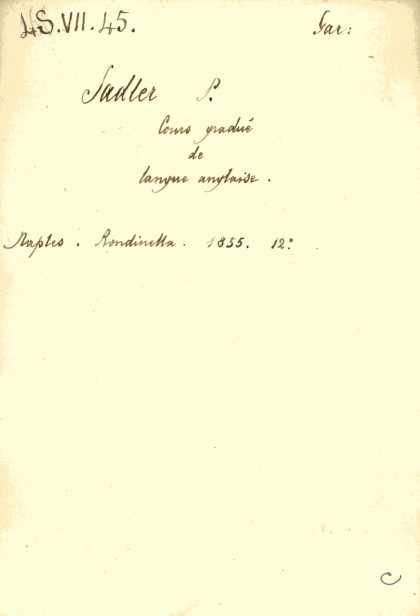 4S.VII.45. Gar:
Sadler P.
Cours gradué
de
langue anglaise.
Naples. Rondinella. 1855. 12°
C